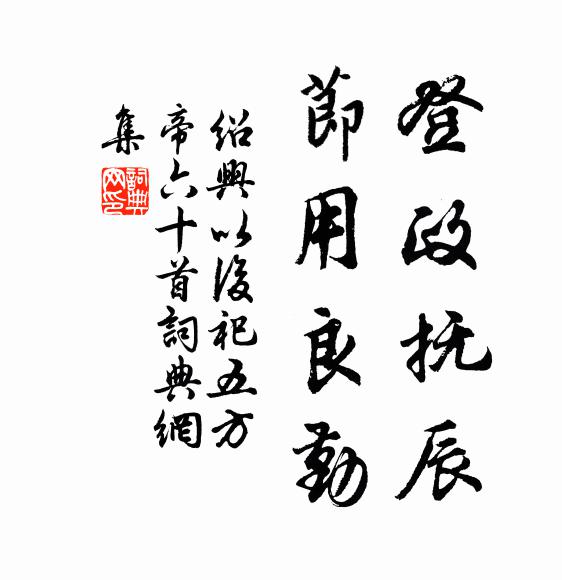 登政抚辰
節用良勤
紹興以後祀五方
帝六十首詞典網
集
詞典
网印